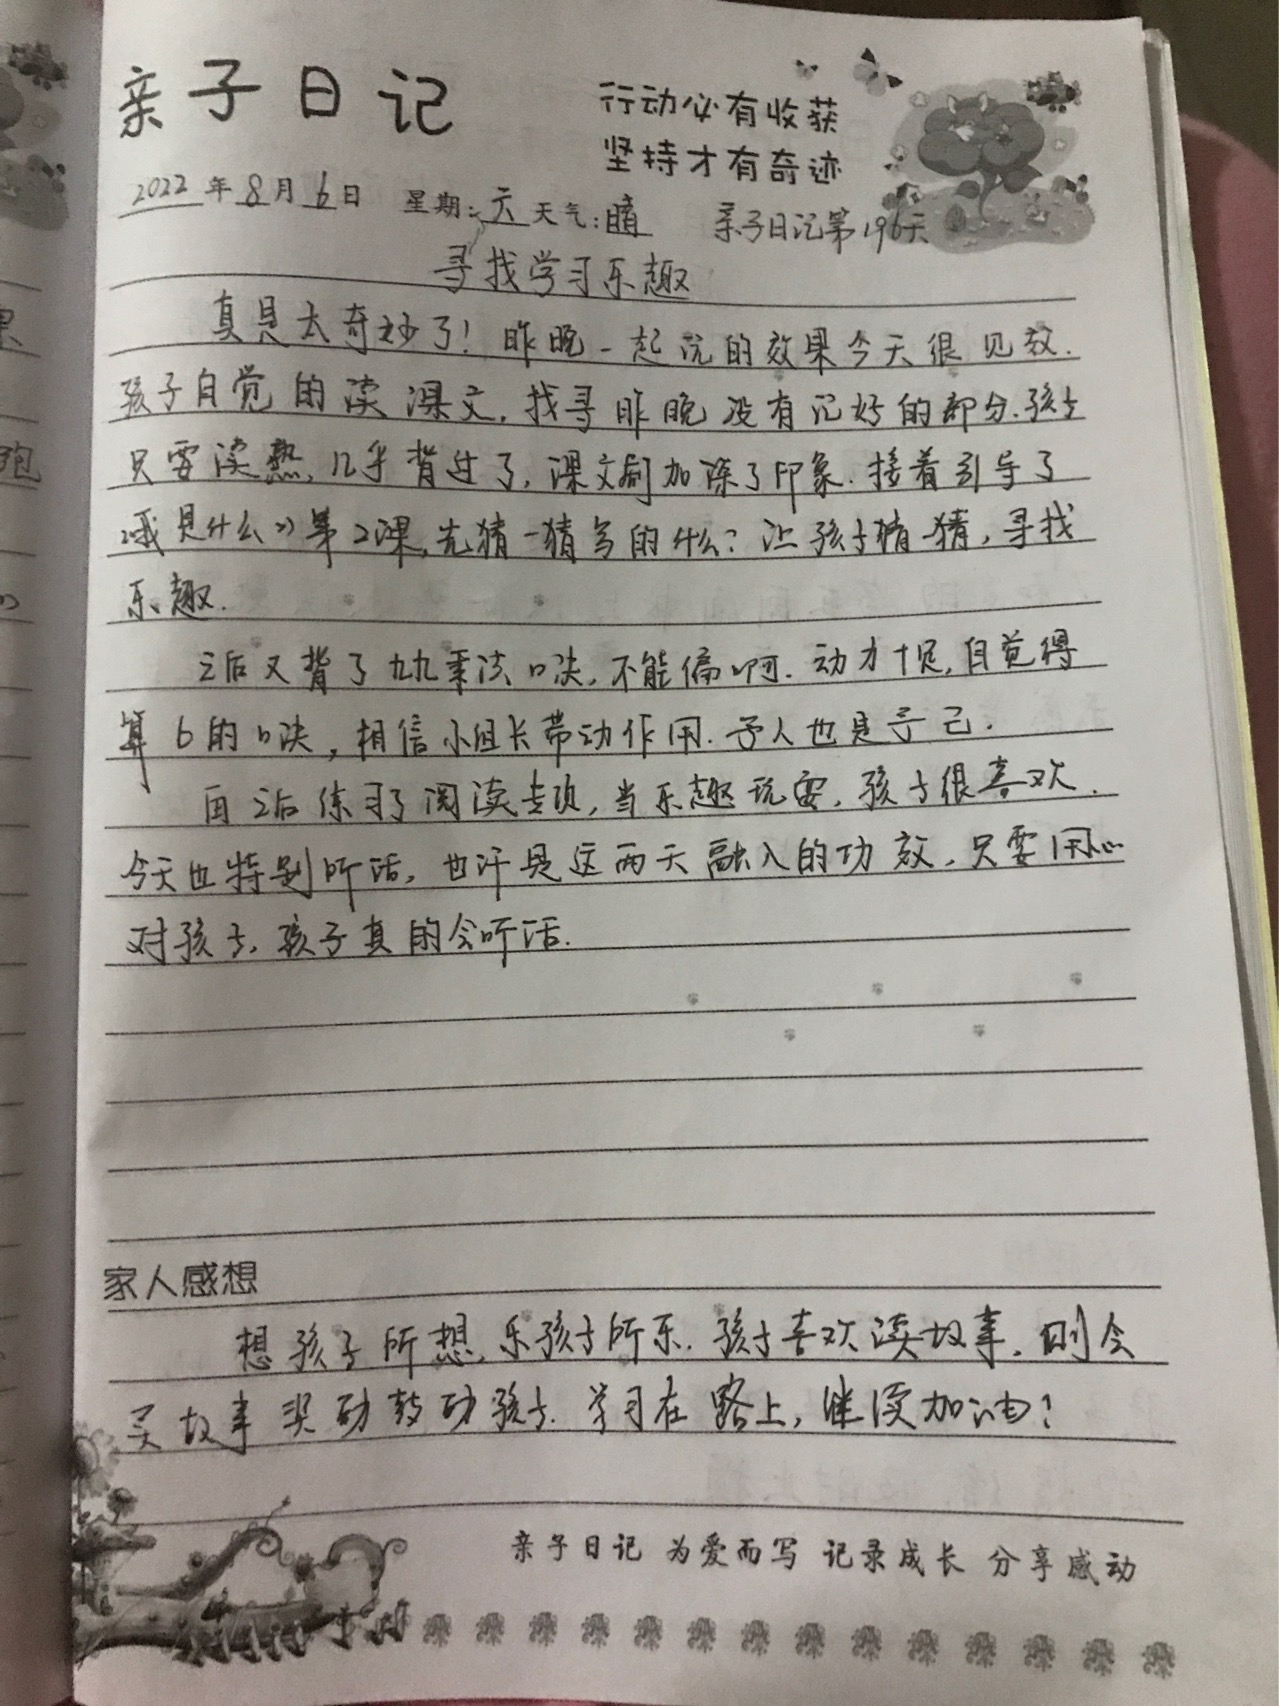 亲子日记
行动必有收获
坚持才有奇迹
2022年8月6日 星期:六 天气:晴 亲子日记第196天
寻找学习乐趣
真是太奇妙了!昨晚一起玩的效果今天很见效.
孩子自觉的读课文,找寻昨晚没有记好的部分.孩子
只要读熟,几乎背过了,课文刷加深了印象.接着引导了
《我是什么》第2课,先猜一猜写的什么?让孩子猜一猜,寻找
乐趣.
之后又背了九九乘法口决,不能偏啊.动力十足,自觉得
算6的口决,相信小组长带动作用.予人也是予己.
再之后练习了阅读专项,当乐趣玩耍,孩子很喜欢.
今天也特别听话,也许是这两天融入的功效,只要用心
对孩子,孩子真的会听话.
家人感想
想孩子所想,乐孩子所乐.孩子喜欢读故事,则会
买故事奖励鼓励孩子.学习在路上,继续加油!
亲子日记 为爱而写 记录成长 分享感动